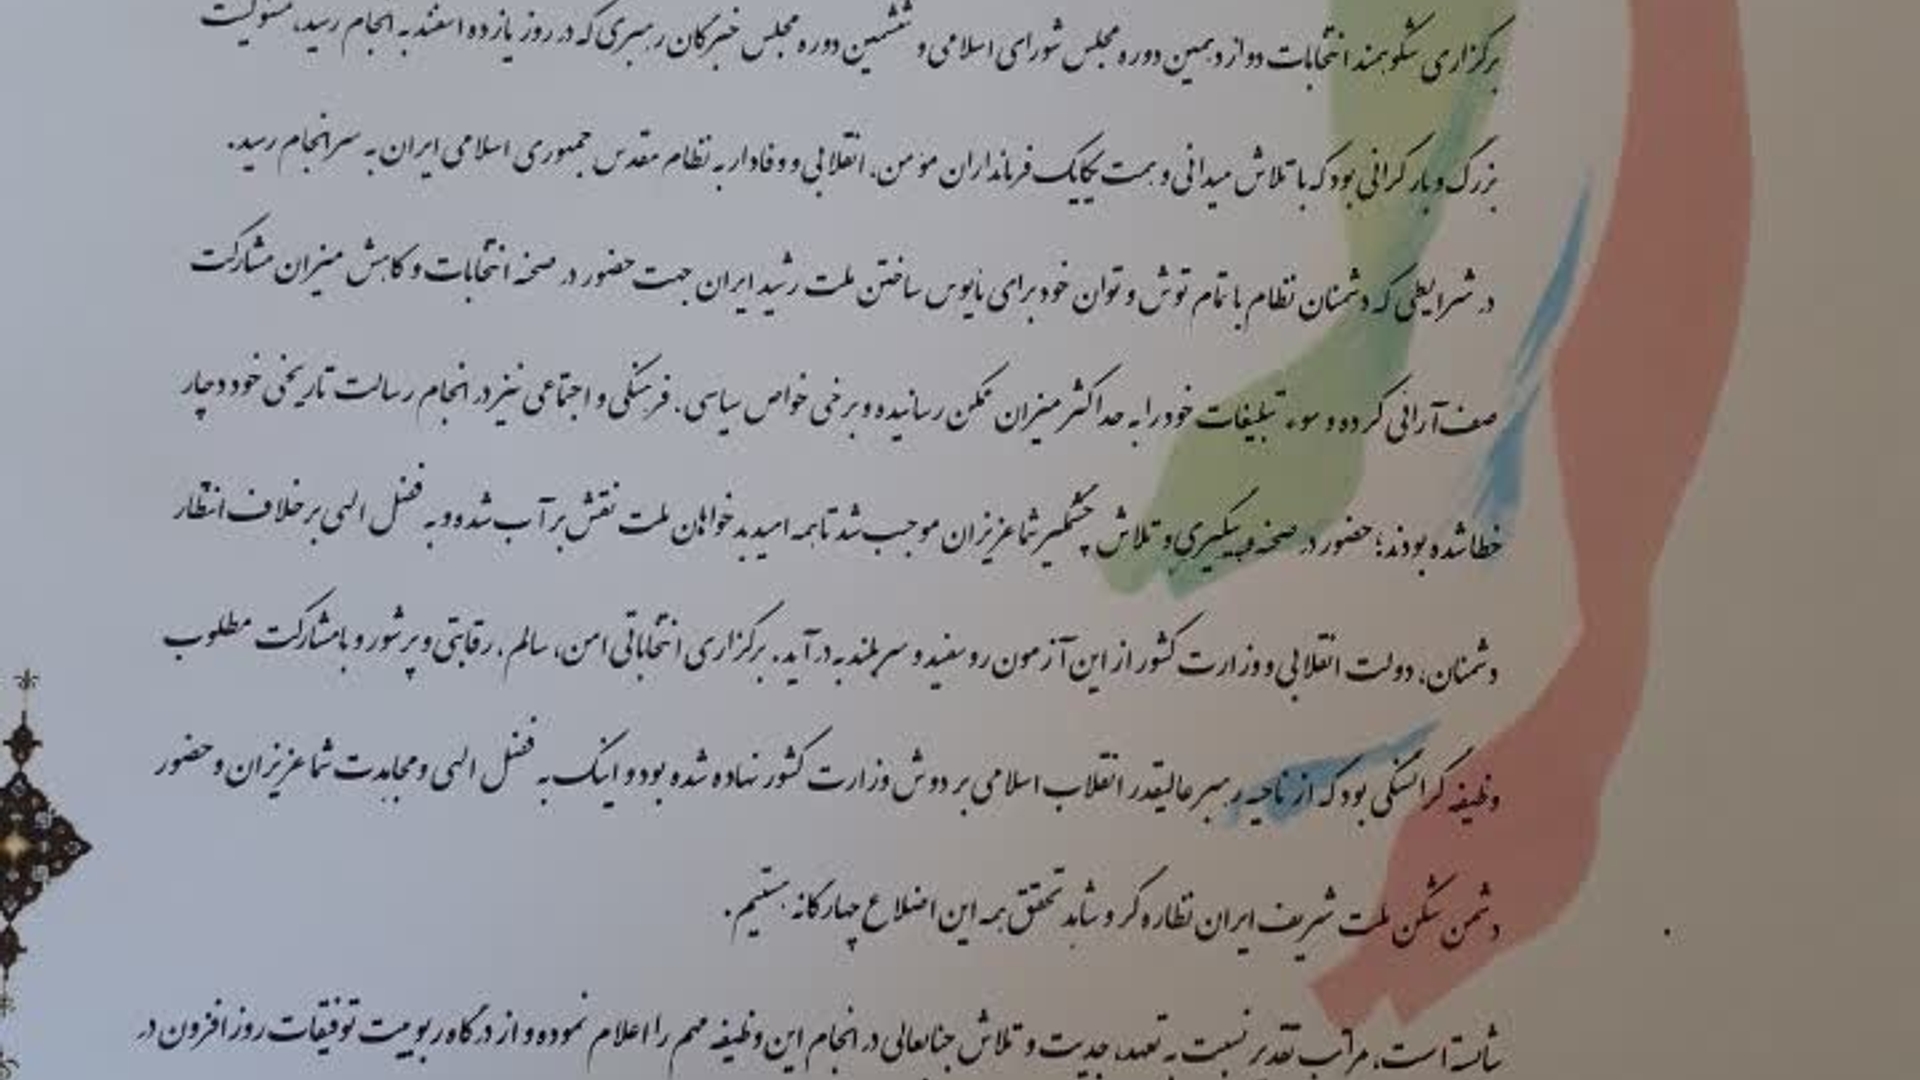 برگزاری شکوهمند انتخابات دوازدهمین دوره مجلس شورای اسلامی و ششمین دوره مجلس خبرگان رهبری که در روز یازده اسفند به انجام رسید، مسئولیت
بزرگ و بار گرانی بود که با تلاش میدانی و همت یکایک فرمانداران مؤمن، انقلابی و وفادار به نظام مقدس جمهوری اسلامی ایران به سرانجام رسید.
در شرایطی که دشمنان نظام با تمام توش و توان خود برای مایوس ساختن ملت رشید ایران جهت حضور در صحنه انتخابات و کاهش میزان مشارکت
صف‌آرائی کرده و سوء تبلیغات خود را به حداکثر میزان ممکن رسانیده و برخی خواص سیاسی، فرهنگی و اجتماعی نیز در انجام رسالت تاریخی خود دچار
خطا شده بودند؛ حضور در صحنه و پیگیری و تلاش چشمگیر شما عزیزان موجب شد تا همه امید بدخواهان ملت نقش بر آب شده و به فضل الهی برخلاف انتظار
دشمنان، دولت انقلابی و وزارت کشور از این آزمون روسفید و سربلند به در آید. برگزاری انتخاباتی امن، سالم، رقابتی و پرشور و با مشارکت مطلوب
وظیفه گرانسنگی بود که از ناحیه رهبر عالیقدر انقلاب اسلامی بر دوش وزارت کشور نهاده شده بود و اینک به فضل الهی و مجاهدت شما عزیزان و حضور
دشمن شکن ملت شریف ایران نظاره‌گر و شاهد تحقق همه این اضلاع چهارگانه هستیم.
شایسته است، مراتب تقدیر نسبت به تعهد، جدیت و تلاش جنابعالی در انجام این وظیفه مهم را اعلام نموده و از درگاه ربوبیت توفیقات روزافزون در